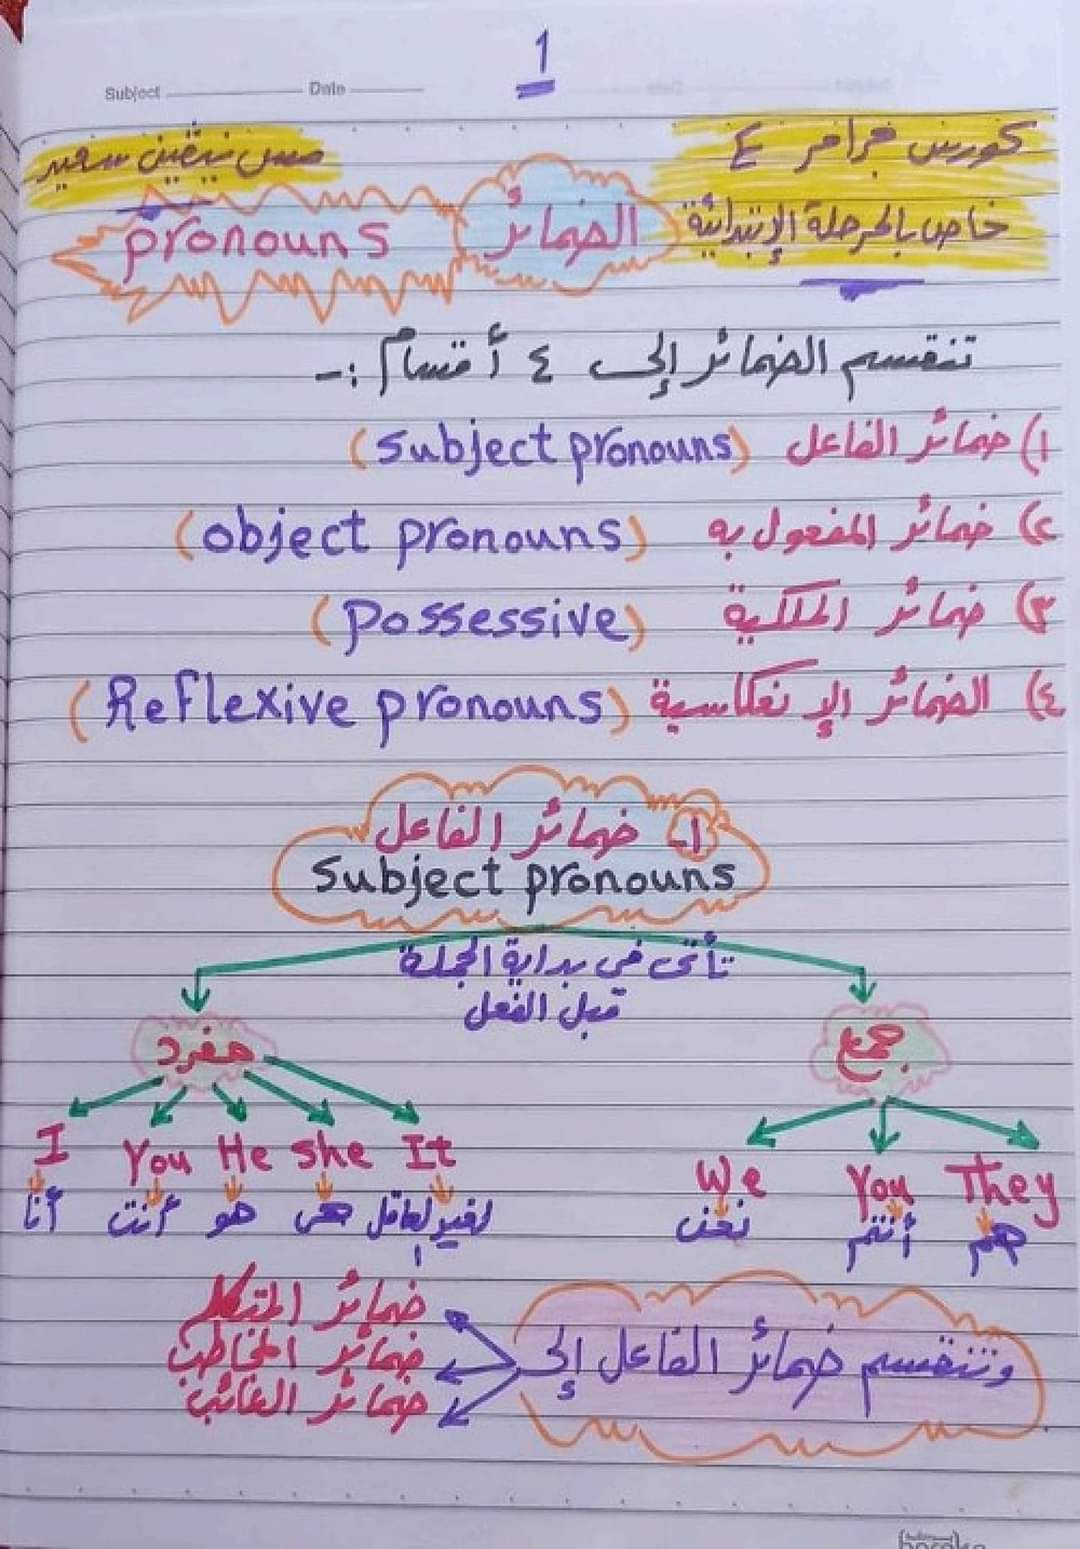 1
Subject
Date
كورس جرامر ٤
خاص بالمرحلة الإبتدائية
مس نيڤين سعيد
الضمائر
pronouns
تنقسم الضمائر إلى ٤ أقسام :-
١) ضمائر الفاعل (Subject pronouns)
٢) ضمائر المفعول به (object pronouns)
٣) ضمائر الملكية (Possessive)
٤) الضمائر الإنعكاسية (Reflexive pronouns)
١- ضمائر الفاعل
Subject pronouns
تأتى فى بداية الجملة
قبل الفعل
مفرد
جمع
I You He she It
أنا أنت هو هى لغير العاقل
We You They
نحن أنتم هم
وتنقسم ضمائر الفاعل إلى
ضمائر المتكلم
ضمائر المخاطب
ضمائر الغائب